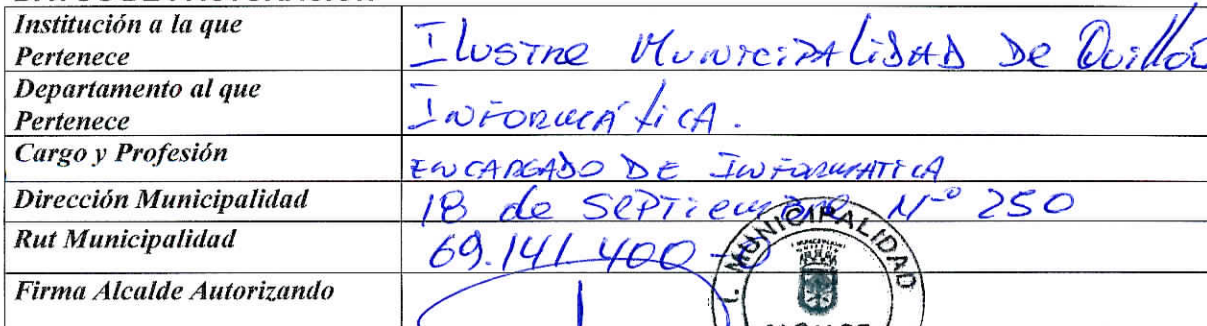 Institución a la que
Pertenece
Ilustre Municipalidad De Quillón
Departamento al que
Pertenece
Informática.
Cargo y Profesión
ENCARGADO DE INFORMATICA
Dirección Municipalidad
18 de Septiembre N° 250
Rut Municipalidad
69.141.400-
Firma Alcalde Autorizando
I. MUNICIPALIDAD